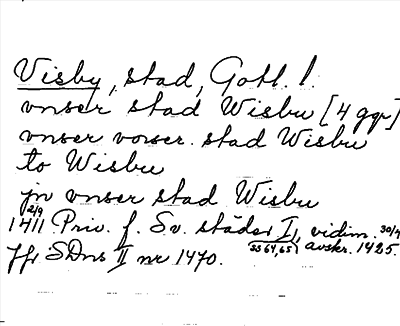 Visby, stad, Gotl. l.
vnser stad Wisbu [4 ggr]
vnser vorser. stad Wisbu
to Wisbu
jn vnser stad Wisbu
2/9 1411 Priv. f. Sv. städer I, vidim. 30/4
jfr SDns II nr 1470. ss 64, 65) avskr. 1425.